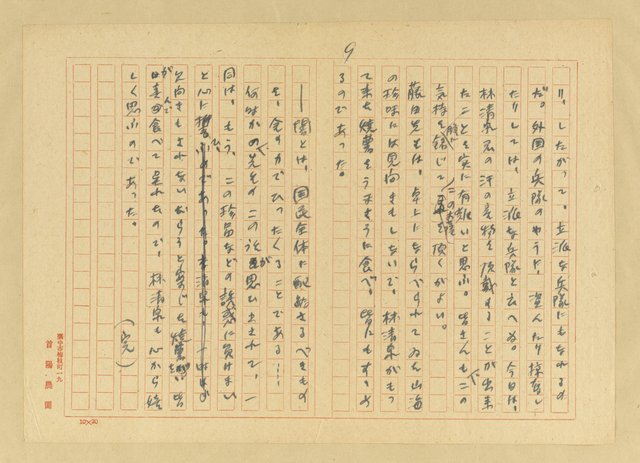 9
り、したがつて、立派な兵隊にもなれるの
だ。外国の兵隊のやうに、盗んだり掠奪し
たりしては、立派な兵隊と云へぬ。今日は、
林清泉君の汗の物を頂戴することが出来
たことを実に有難いと思ふ。皆さんもこの
気持を肝に銘じてこのお藷を頂くがよい。
藤田先生は、卓上にならべられてゐる山海
の珍味には見向きもしないで、林清泉がもつ
て来た焼藷をうまさうに食べ、皆にもすゝめ
るのであつた。
——闇とは、国民全体に配給さるべきもの
を、金の力でひつたくることである——
何時かの先生のこの話が思ひ出されて、一
同は、もう、この珍品などの誘惑に負けまい
と心に誓ふのであつた。
見向きもされないだらうと案じた焼藷を皆
が喜んで食べて呉れたので、林清泉も心から嬉
しく思ふのであつた。
(完)
臺中市梅枝町一九
首陽農園
10×20